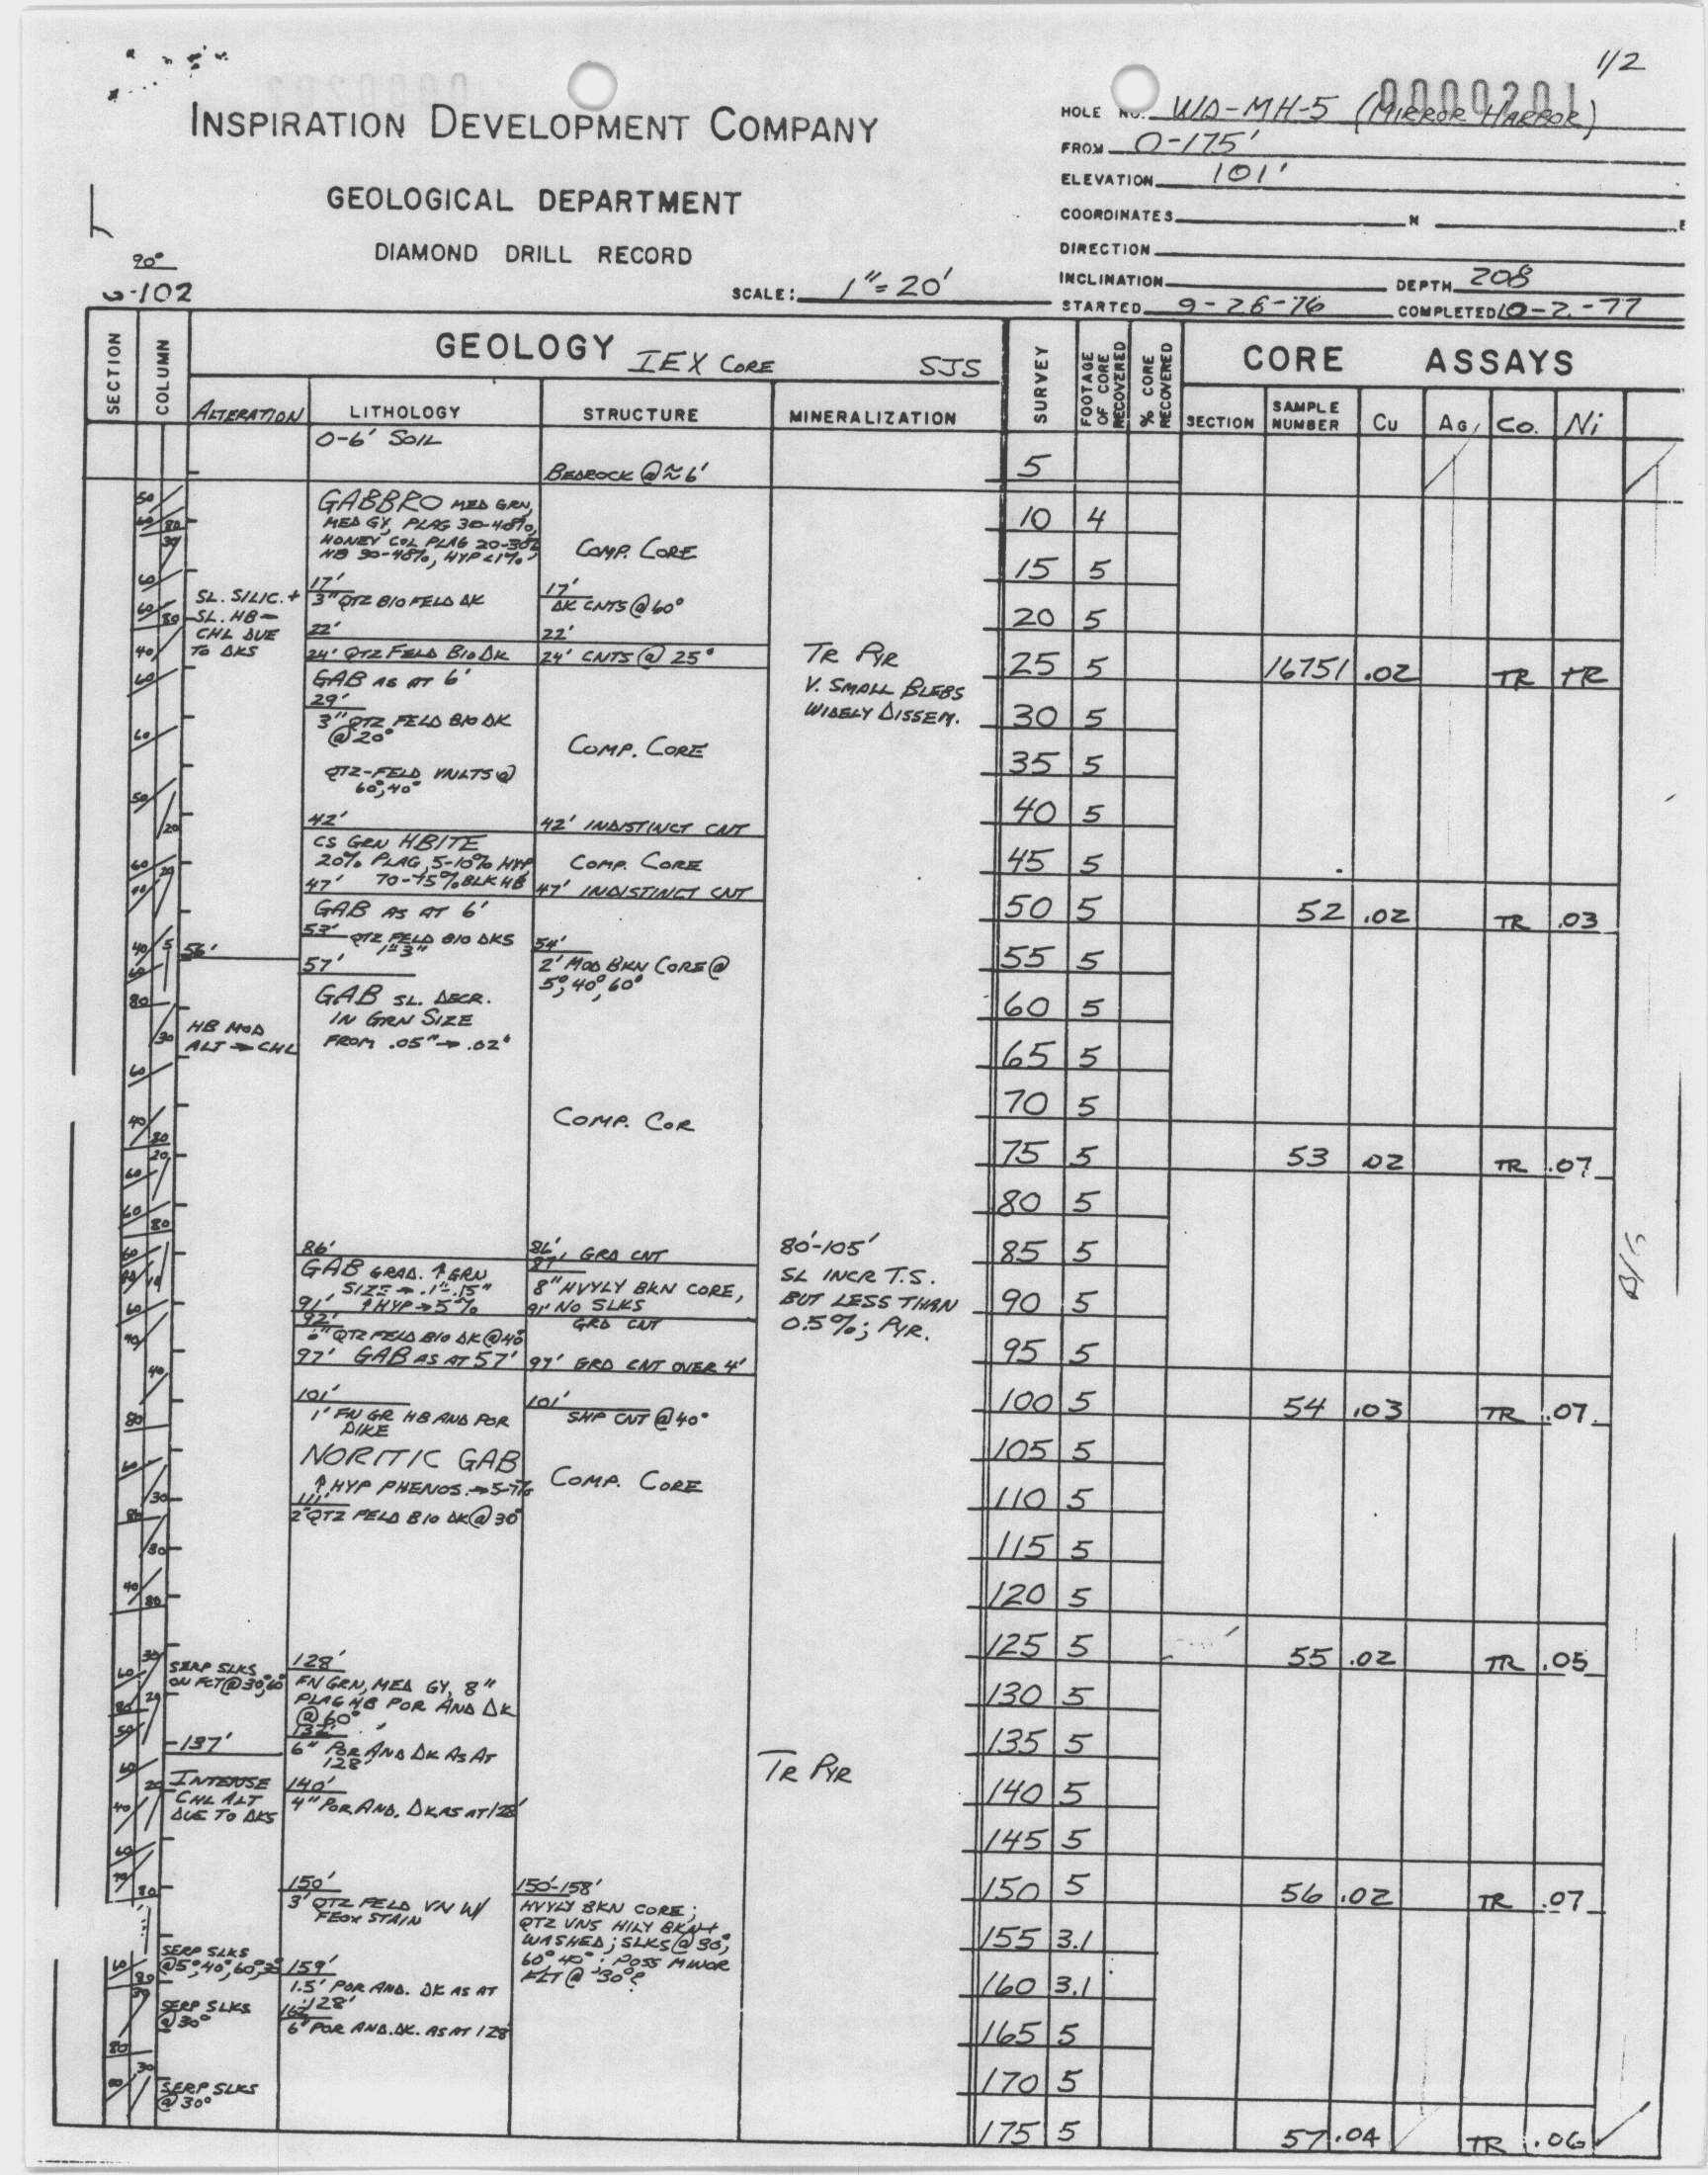 1/2
0000201
INSPIRATION DEVELOPMENT COMPANY
GEOLOGICAL DEPARTMENT
DIAMOND DRILL RECORD
90°
-102
SCALE: 1"=20'
HOLE NO. WD-MH-5 (MIRROR HARBOR)
FROM 0-175'
ELEVATION 101'
COORDINATES N E
DIRECTION
INCLINATION DEPTH 208
STARTED 9-28-76 COMPLETED 10-2-77
SECTION
COLUMN
GEOLOGY IEX CORE SJS
ALTERATION LITHOLOGY STRUCTURE MINERALIZATION
SURVEY
FOOTAGE OF CORE RECOVERED
% CORE RECOVERED
CORE ASSAYS
SECTION SAMPLE NUMBER Cu AG Co. Ni
0-6' SOIL
BEDROCK @ ≈ 6'
GABBRO MED GRN,
MED GY, PLAG 30-40%,
HONEY COL PLAG 20-30%
HB 30-40%, HYP <1%
COMP. CORE
SL. SILIC. +
SL. HB -
CHL DUE
TO DKS
17'
3" QTZ BIO FELD DK
17'
DK CNTS @ 60°
22'
22'
24' QTZ FELD BIO DK
24' CNTS @ 25°
GAB AS AT 6'
29'
3" QTZ FELD BIO DK
@ 20°
QTZ-FELD VNLTS @
60°, 40°
COMP. CORE
TR PYR
V. SMALL BLEBS
WIDELY DISSEM.
42'
42' INDISTINCT CNT
CS GRN HBITE
20% PLAG, 5-10% HYP
70-75% BLK HB
COMP. CORE
47'
47' INDISTINCT CNT
GAB AS AT 6'
53' QTZ FELD BIO DKS
1"-3"
54'
2' MOD BKN CORE @
5°, 40°, 60°
56'
57'
GAB SL. DECR.
IN GRN SIZE
FROM .05" → .02"
HB MOD
ALT → CHL
COMP. COR
86'
86' GRD CNT
87'
GAB GRAD. ↑ GRN
SIZE → .1"-.15"
91' ↑ HYP → 5%
8" HVYLY BKN CORE,
NO SLKS
91' GRD CNT
92'
6" QTZ FELD BIO DK @ 40°
97' GAB AS AT 57'
97' GRD CNT OVER 4'
80'-105'
SL INCR T.S.
BUT LESS THAN
0.5%; PYR.
101'
1' FN GR HB AND POR
DIKE
101'
SHP CNT @ 40°
NORITIC GAB
↑ HYP PHENOS. → 5-7%
COMP. CORE
111'
2" QTZ FELD BIO DK @ 30°
SERP SLKS
ON FCT @ 30°, 60°
128'
FN GRN, MED GY, 8"
PLAG HB POR AND DK
@ 60°
132'
6" POR AND DK AS AT
128'
137'
INTENSE
CHL ALT
DUE TO DKS
140'
4" POR AND. DK AS AT 128'
TR PYR
150'
3' QTZ FELD VN W/
FEOX STAIN
150'-158'
HVYLY BKN CORE;
QTZ VNS HILY BKN +
WASHED; SLKS @ 30°,
60°, 40°; POSS MINOR
FLT @ 30°?
SERP SLKS
@ 5°, 40°, 60°, 30°
159'
1.5' POR AND. DK AS AT
128'
SERP SLKS
@ 30°
6" POR AND. DK. AS AT 128'
SERP SLKS
@ 30°
5
10 4
15 5
20 5
25 5 16751 .02 TR TR
30 5
35 5
40 5
45 5
50 5 52 .02 TR .03
55 5
60 5
65 5
70 5
75 5 53 .02 TR .07
80 5
85 5
90 5
95 5
100 5 54 .03 TR .07
105 5
110 5
115 5
120 5
125 5 55 .02 TR .05
130 5
135 5
140 5
145 5
150 5 56 .02 TR .07
155 3.1
160 3.1
165 5
170 5
175 5 57 .04 TR .06